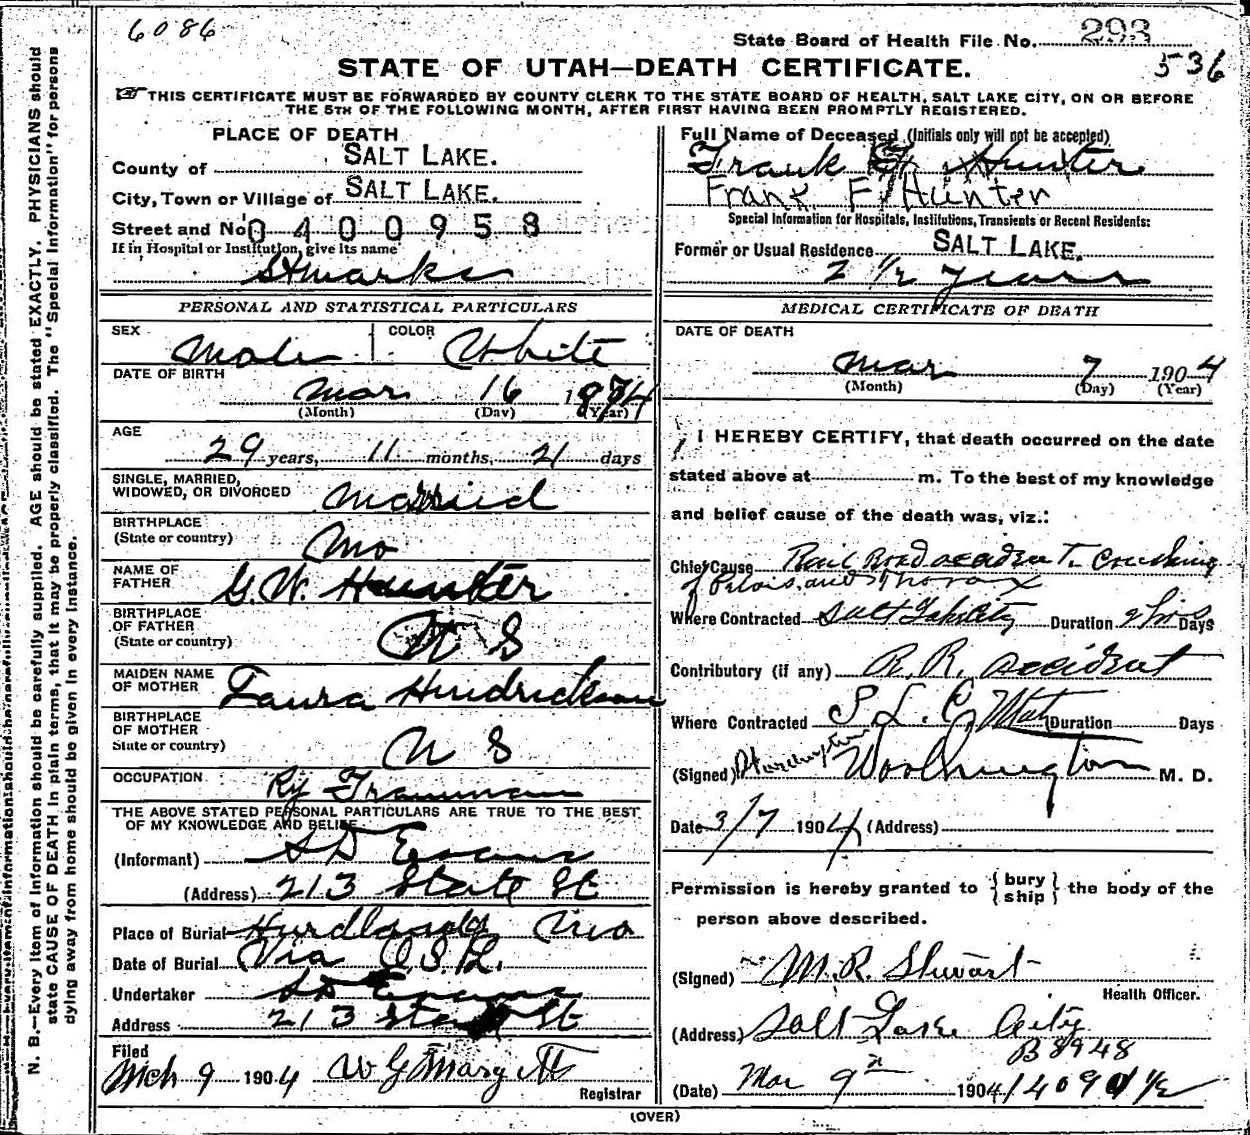 6086
State Board of Health File No. 293
536
STATE OF UTAH—DEATH CERTIFICATE.
THIS CERTIFICATE MUST BE FORWARDED BY COUNTY CLERK TO THE STATE BOARD OF HEALTH, SALT LAKE CITY, ON OR BEFORE
THE 5TH OF THE FOLLOWING MONTH, AFTER FIRST HAVING BEEN PROMPTLY REGISTERED.
N. B.—Every item of information should be carefully supplied. AGE should be stated EXACTLY. PHYSICIANS should
state CAUSE OF DEATH in plain terms, that it may be properly classified. The "Special Information" for persons
dying away from home should be given in every instance.
PLACE OF DEATH
County of SALT LAKE.
City, Town or Village of SALT LAKE.
Street and No. 0400958
If in Hospital or Institution, give its name
St Marks
PERSONAL AND STATISTICAL PARTICULARS
SEX Male COLOR White
DATE OF BIRTH
Mar 16 1874
(Month) (Day) (Year)
AGE
29 years, 11 months, 21 days
SINGLE, MARRIED,
WIDOWED, OR DIVORCED Married
BIRTHPLACE
(State or country) Mo
NAME OF
FATHER G. W. Hunter
BIRTHPLACE
OF FATHER
(State or country) U S
MAIDEN NAME
OF MOTHER Laura Hendrickson
BIRTHPLACE
OF MOTHER
State or country) U S
OCCUPATION Ry Trainman
THE ABOVE STATED PERSONAL PARTICULARS ARE TRUE TO THE BEST
OF MY KNOWLEDGE AND BELIEF
(Informant) S D Evans
(Address) 213 State St
Place of Burial Hurdland Mo
Date of Burial Via O.S.L.
Undertaker S D Evans
Address 213 State St
Filed
Mch 9 1904
Registrar
Full Name of Deceased (Initials only will not be accepted)
Frank F. Hunter
Frank F Hunter
Special Information for Hospitals, Institutions, Transients or Recent Residents:
Former or Usual Residence SALT LAKE.
2 1/2 years
MEDICAL CERTIFICATE OF DEATH
DATE OF DEATH
Mar 7 1904
(Month) (Day) (Year)
I HEREBY CERTIFY, that death occurred on the date
stated above at m. To the best of my knowledge
and belief cause of the death was, viz.:
Chief Cause Rail Road accident. Crushing
of Pelvis and Thorax
Where Contracted Salt Lake City Duration 2 hrs Days
Contributory (if any) R. R. accident
Where Contracted S. L. C. Utah Duration Days
(Signed) Worthington M. D.
Date 3/7 1904 (Address)
Permission is hereby granted to { bury ship } the body of the
person above described.
(Signed) M. R. Stewart
Health Officer.
(Address) Salt Lake City
B8948
(Date) Mar 9 1904
(OVER)